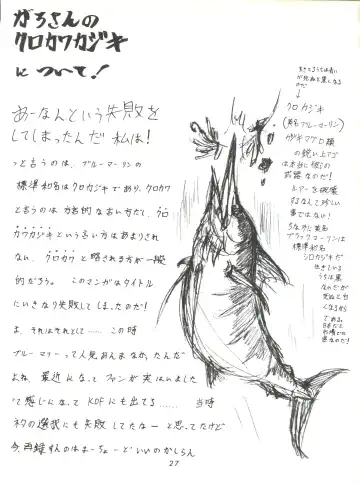 がちさんの
クロカワカジキ
について!
あーなんという失敗を
してしまったんだ 私は!
っと言うのは、ブルーマーリンの
標準和名はクロカジキであり、クロカワ
と言うのは方言的な言い方だし、クロ
カワカジキという言い方はあまりされ
ない、クロカワと略される方が一般
的だろう。このマンガはタイトル
にいきなり失敗してしまったのだ!
ま、それはそれとして……この時
ブルーマリーって人見あんまなかったんだ
よね、最近になってファンが実はいました
って感じになってKOFにも出てる……当時
ネタの選択にも失敗してたなーと思ってたけど
今、再録すんのはまーちょーどいいのかしらん
生きてるうちは青い
が死ぬと黒くなる
のだ
クロカジキ
(英名ブルーマーリン)
カジキマグロ類
の鋭い上アゴ
は本当に彼らの
武器なのだ!
ルアーを破壊
するなんて珍しい
事ではない!
ちなみに英名
ブラックマーリンは
標準和名
シロカジキだ
生きている
うちは黒
なのだが
死ぬと白
くなるから
である。
日本だと
市場での
色なのだ!
27